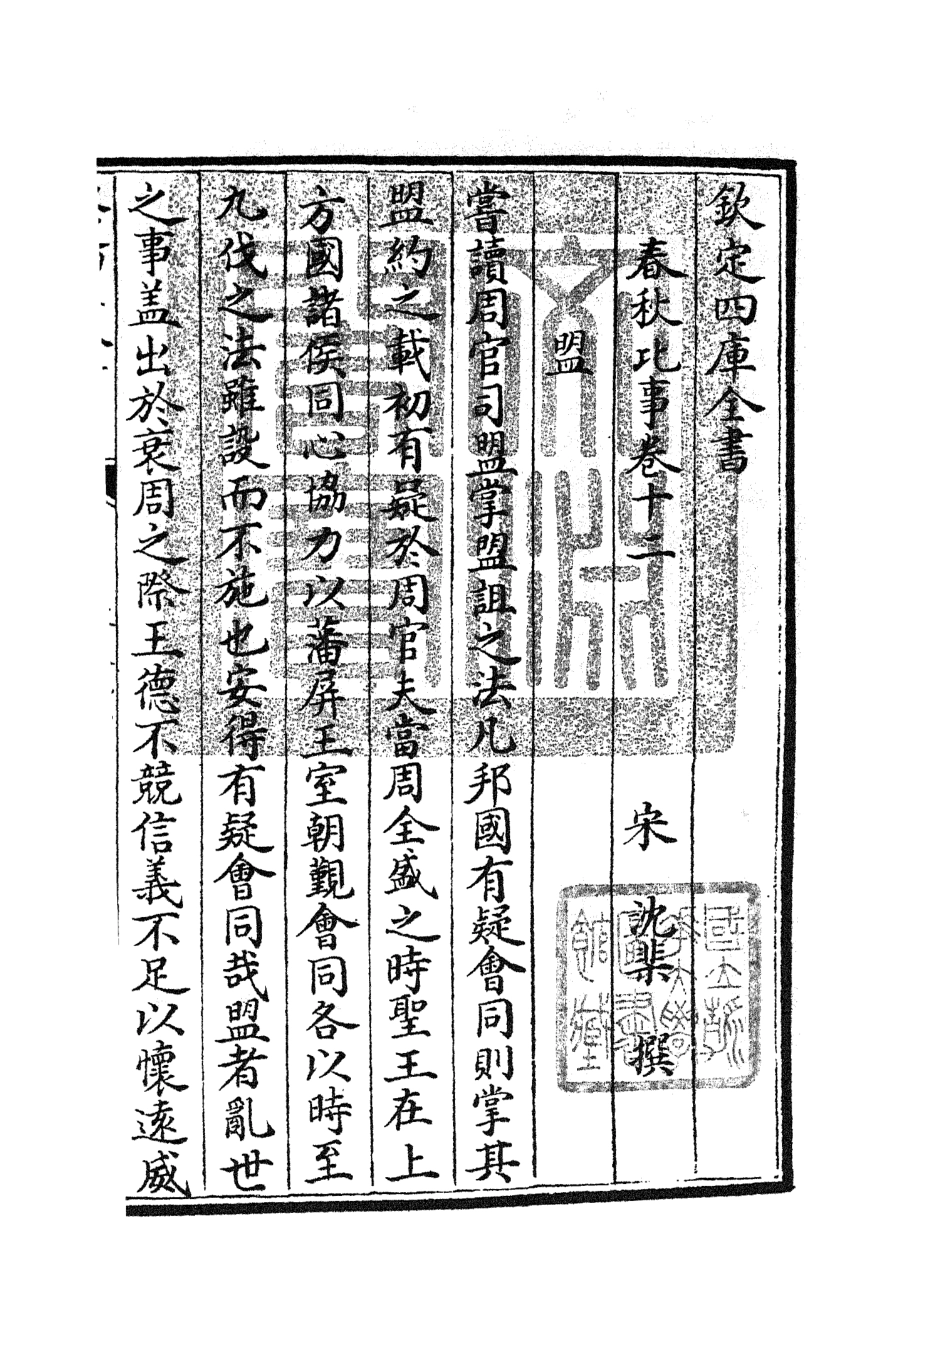 欽定四庫全書
春秋比事卷十二
宋 沈棐 撰
盟
嘗讀周官司盟掌盟詛之法凡邦國有疑會同則掌其
盟約之載初有疑於周官夫當周全盛之時聖王在上
方國諸侯同心協力以藩屏王室朝覲會同各以時至
九伐之法雖設而不施也安得有疑會同哉盟者亂世
之事盖出於衰周之際王德不競信義不足以懷遠威